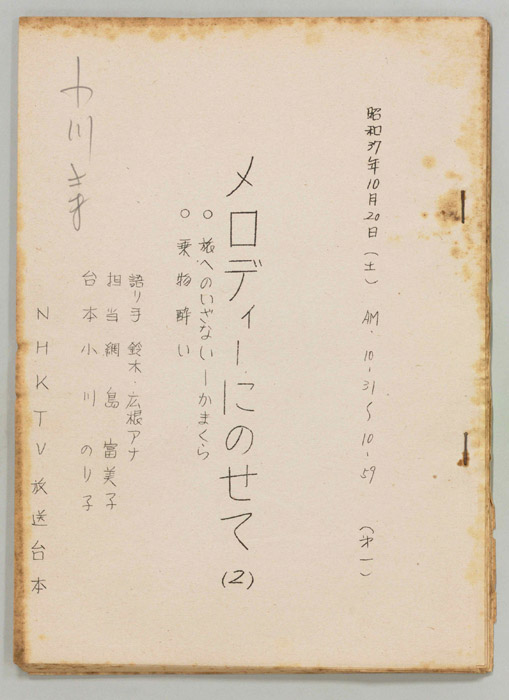 昭和37年10月20日（土） AM.10-31～10-59 （才一）
メロディーにのせて（2）
○ 旅へのいざないーかまくら
○ 乗物酔い
語り手 鈴木・広根アナ
担当 綱島富美子
台本 小川のり子
NHKTV放送台本